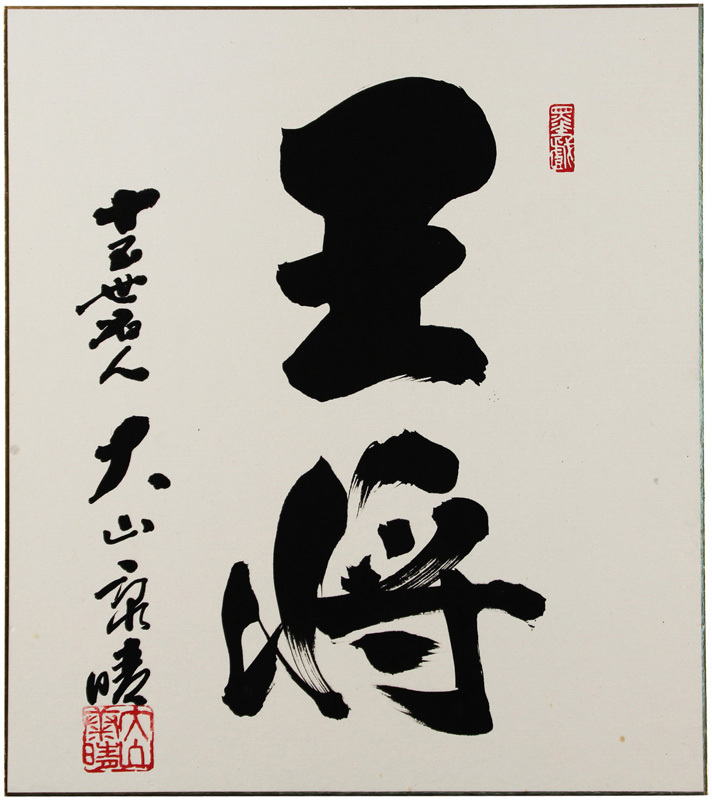 王将
十五世名人 大山康晴
大山康晴